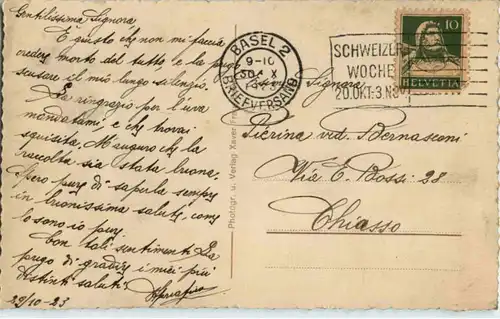 Gentilissima Signora
È giusto che non mi faccia
creder morto del tutto e la prego
scusare il mio lungo silenzio.
La ringrazio per l'uva
mandatami e che trovai
squisita. M'auguro che la
raccolta sia stata buona,
Spero pure di saperla sempre
in buonissima salute, come
lo sono io pure
Con tali sentimenti La
prego di gradire i miei più
distinti saluti
29/10-23
BASEL 2
9-10
X
BRIEFVERSAND
SCHWEIZER
WOCHE
20.OKT-3.NOV
10
HELVETIA
Signora
Pierina ved. Bernasconi
Via E. Bossi 28
Chiasso
Photogr. u. Verlag Xaver